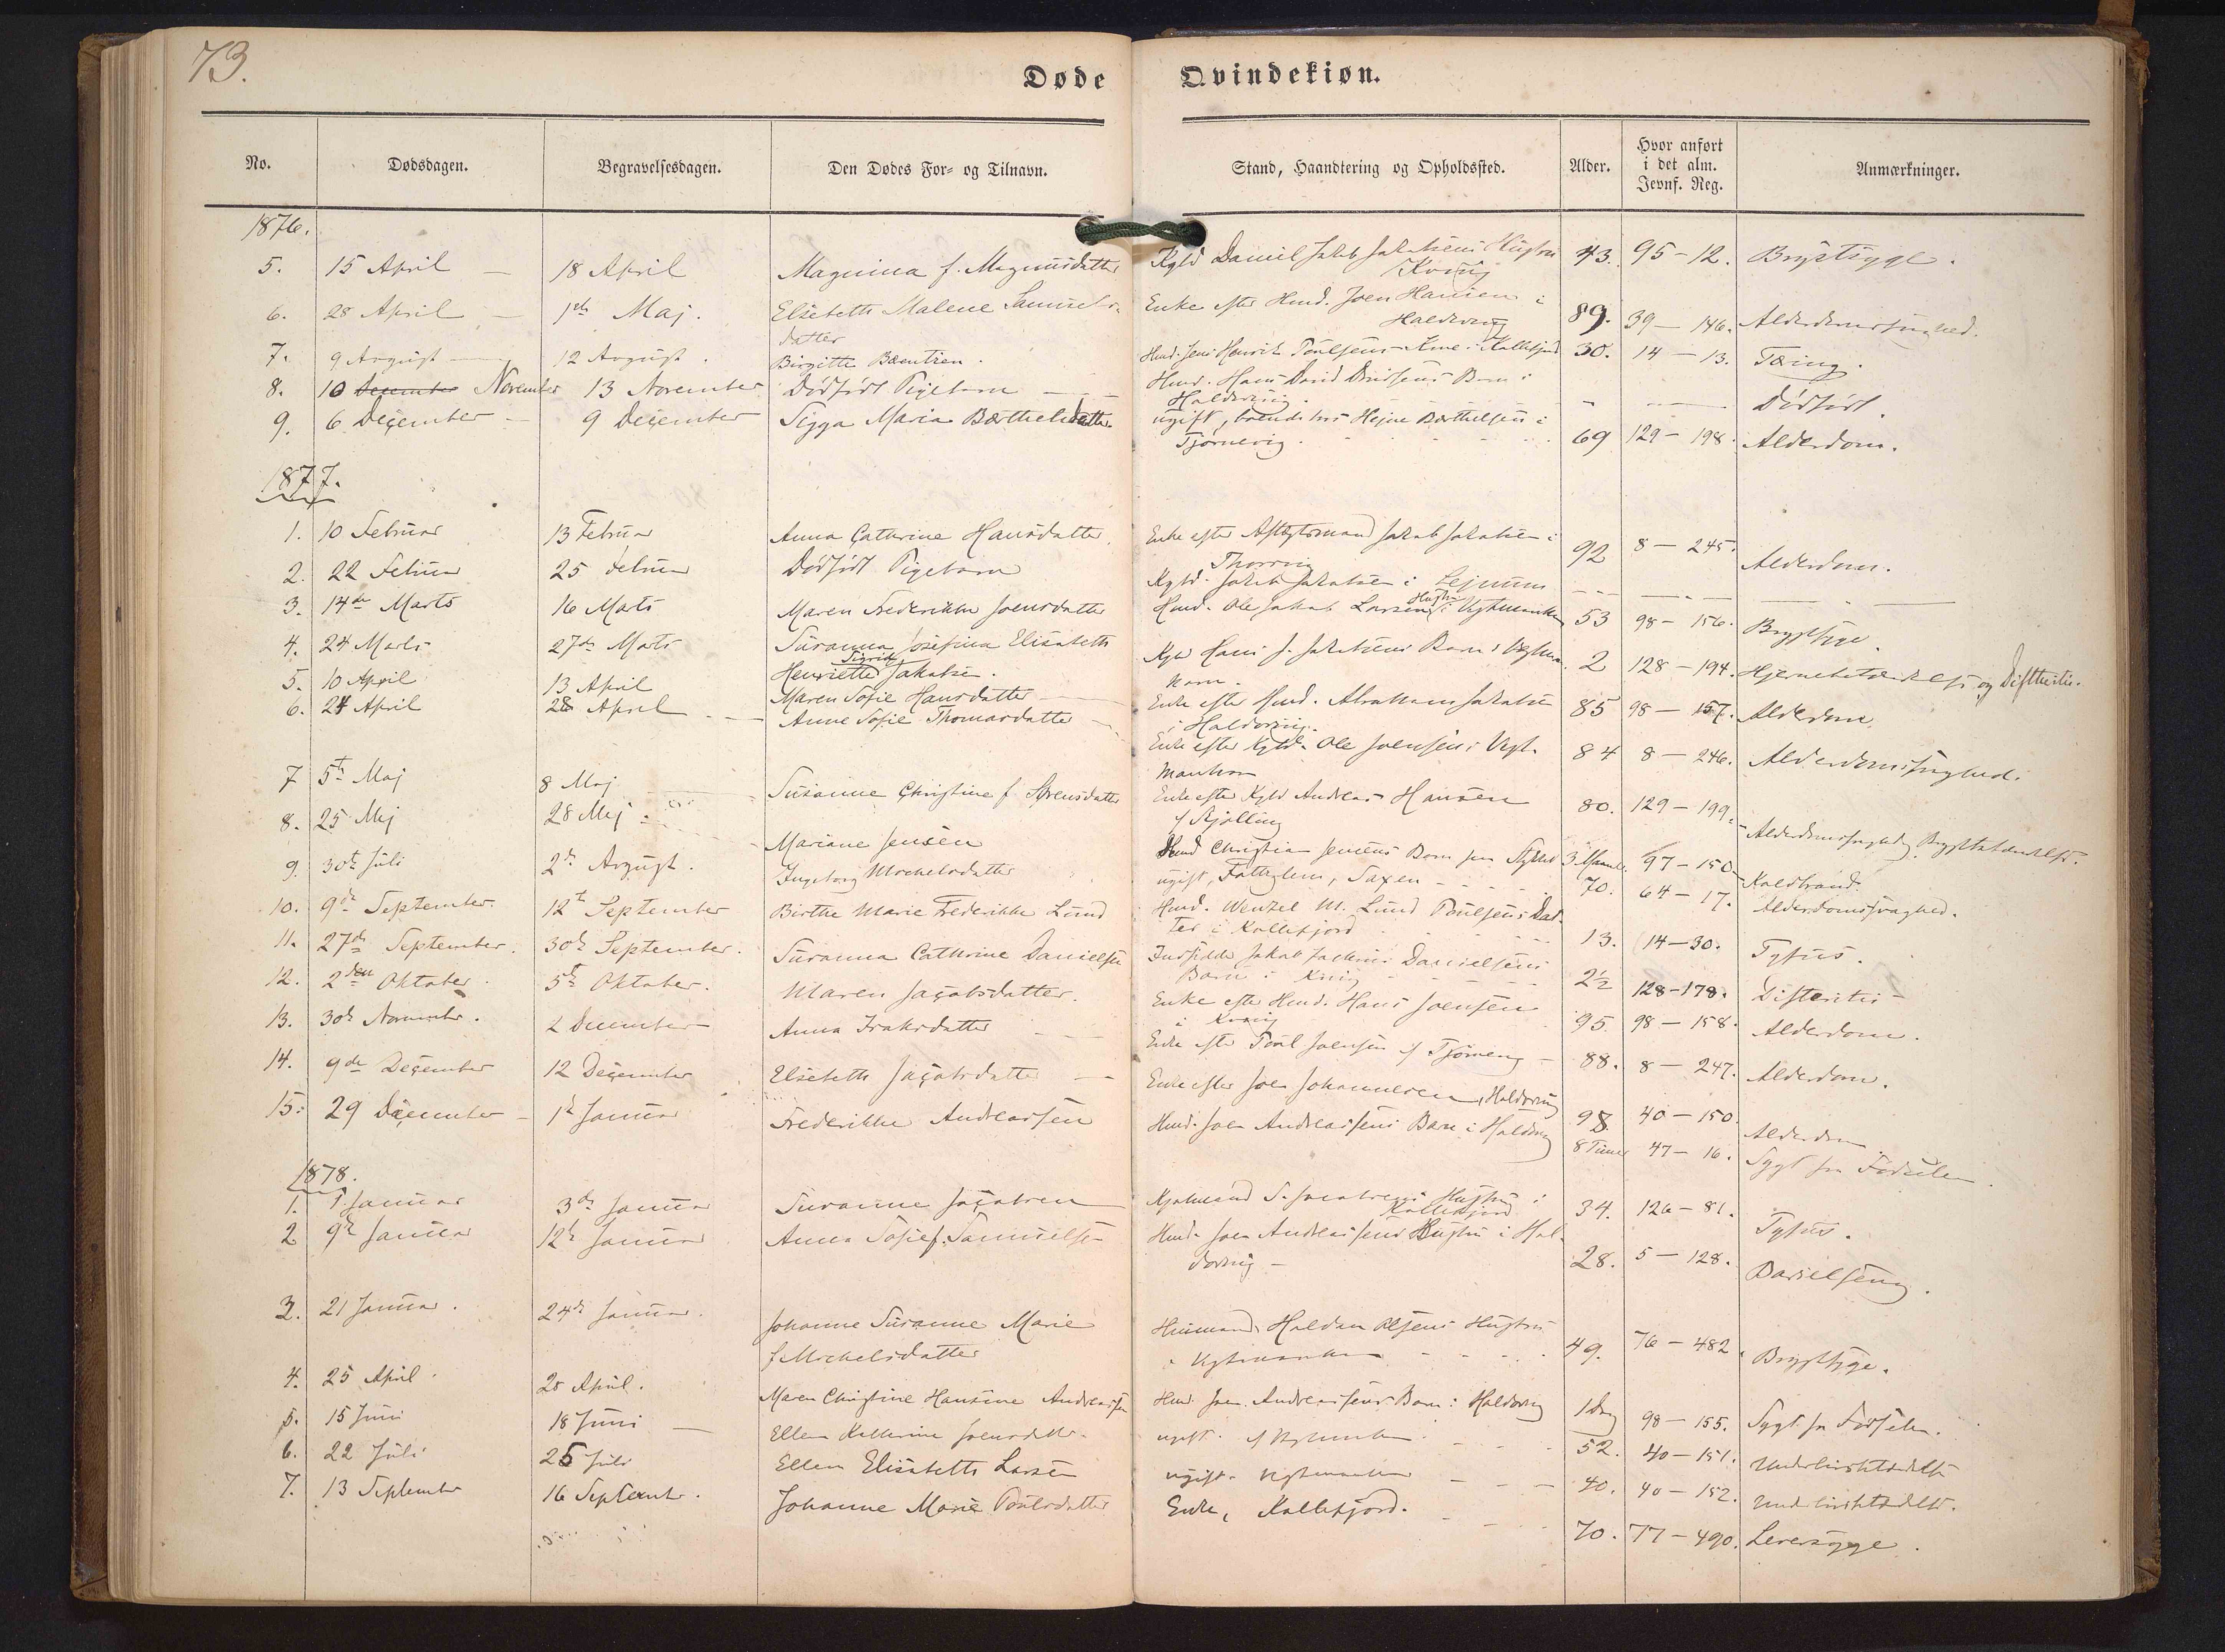 73.
Døde Qvindekiøn.
No. Dødsdagen. Begravelsesdagen. Den Dødes For- og Tilnavn. Stand, Haandtering og Opholdssted. Alder. Hvor anført i det alm. Jevnf. Reg. Anmærkninger.
1876.
5. 15 April 18 April Magnina f. Magnusdatter Kgld Daniel Jakob Jakobsens Hustru 43. 95-12. Brystsyge.
Kvivig
6. 28 April 1ste Maj. Elsebeth Malene Samuels- Enke efter Huusd. Joen Hansen i 89. 39-146. Alderdomssvaghed.
datter Haldorsvig
7. 9 August 12 August. Birgitte Bærentsen. Huusd. Jens Henrik Poulsens Kone i Kollefjord 30. 14-13. Tæring.
8. 10 December November 13 November Dødfødt Pigebarn Huusd. Hans David Davidsens Barn i
Haldorsvig. Dødfødt.
9. 6 December 9 December Sigga Maria Barthelsdatter ugift, boende hos Hejne Barthelsen i
Tjørnevig. 69 129-198. Alderdom.
1877.
1. 10 Februar 13 Februar Anna Cathrine Hansdatter. Enke efter Aftægtsmand Jakob Jakobsen i 92 8-245. Alderdom.
Thorsvig
2. 22 Februar 25 Februar Dødfødt Pigebarn Kgld. Jakob Jakobsen i Lejnum
3. 14de Marts 16 Mats Maren Frederikke Joensdatter Huusd. Ole Jakob Larsens Hustru i Vestmanhavn 53 98-156. Brystsyge.
4. 24 Marts 27de Marts Susanna Josefina Elisabeth Kgld Hans J. Jakobsens Barn i Vestman- 2 128-194. Hjernebetændelse og Diftheritis.
Henriette Sigrid Jakobsen. havn.
5. 10 April 13 April Maren Sofie Hansdatter Enke efter Huusd. Abraham Jakobsen 85 98-157. Alderdom.
i Haldorsvig.
6. 24 April 28 April Anne Sofie Thomasdatter Enke efter Kgld. Ole Joensen i Vest- 84 8-246. Alderdomssvaghed.
manhavn
7 5te Maj 8 Maj Susanne Christine f. Sørensdatter Enke efter Kgld Andreas Hansen 80. 129-199. Alderdomssvaghed, Brystbetændelse.
i Stjolling
8. 25 Maj 28 Maj. Mariane Jensen Huusd Christian Jensens Barn paa 3 Maaned. 97-150 Koldbrand.
9. 30te Juli 2de August. Ingeborg Mickelsdatter ugift, Fattiglem, Saxen 70. 64-17. Alderdomssvaghed.
10. 9de September 12te September Birthe Marie Frederikke Lund Huusd. Wentzel M. Lund Poulsens Dat-
ter i Kollefjord 13. 14-30. Tyfus.
11. 27de September. 30te September. Susanna Cathrine Danielsen Indsidder Jakob Joachim Danielsens
Barn i Kvivig 2½ 128-178. Difteritis
12. 2den Oktober. 5te Oktober. Maren Jacobsdatter. Enke efter Huusd. Hans Joensen
i Kvivig 95. 98-158. Alderdom.
13. 30te November. 2 December Anna Isaksdatter Enke efter Poul Joensen i Tjørnevig 88. 8-247. Alderdom.
14. 9de December 12 December Elsebeth Jacobsdatter Enke efter Joen Johannesen i Haldorsvig 98. 40-150 Alderdom
15. 29 December 1te Januar Frederikke Andreassen Huusd. Joen Andreassens Barn i Haldorsvig 8 Timer 47-16. Sygt fra Fødselen.
1878.
1. 1 Januar 3de Januar Susanne Jacobsen Kjøbmand S. Jacobsens Hustru i 34. 126-81. Tyfus.
Kollefjord
2 9de Januar 12te Januar Anna Sofie f. Samuelsen Huusd. Joen Andreassens Hustru i Hal-
dorsvig 28. 5-128. Barselseng.
3. 21 Januar. 24de Januar. Johanne Susanne Marie Huusmand Haldan Olsens Hustru
f. Mickelsdatter i Vestmanhavn 49. 76-482. Brystsyge.
4. 25 April. 28 April. Maren Christine Hansine Andreassen Huusd. Joen Andreassens Barn i Haldorsvig 1 Dag 98-155. Sygt fra Fødselen.
5. 15 Juni 18 Juni Ellen Kathrine Joensdatter ugift. i Vestmanhavn 52. 40-151. Underlivsbetændelse
6. 22 Juli 25 Juli Ellen Elisabeth Larsen ugift. Vestmanhavn 40. 40-152. Underlivsbetændelse.
7. 13 September 16 September. Johanne Marie Poulsdatter Enke, Kollefjord. 70. 77-490. Leversyge.